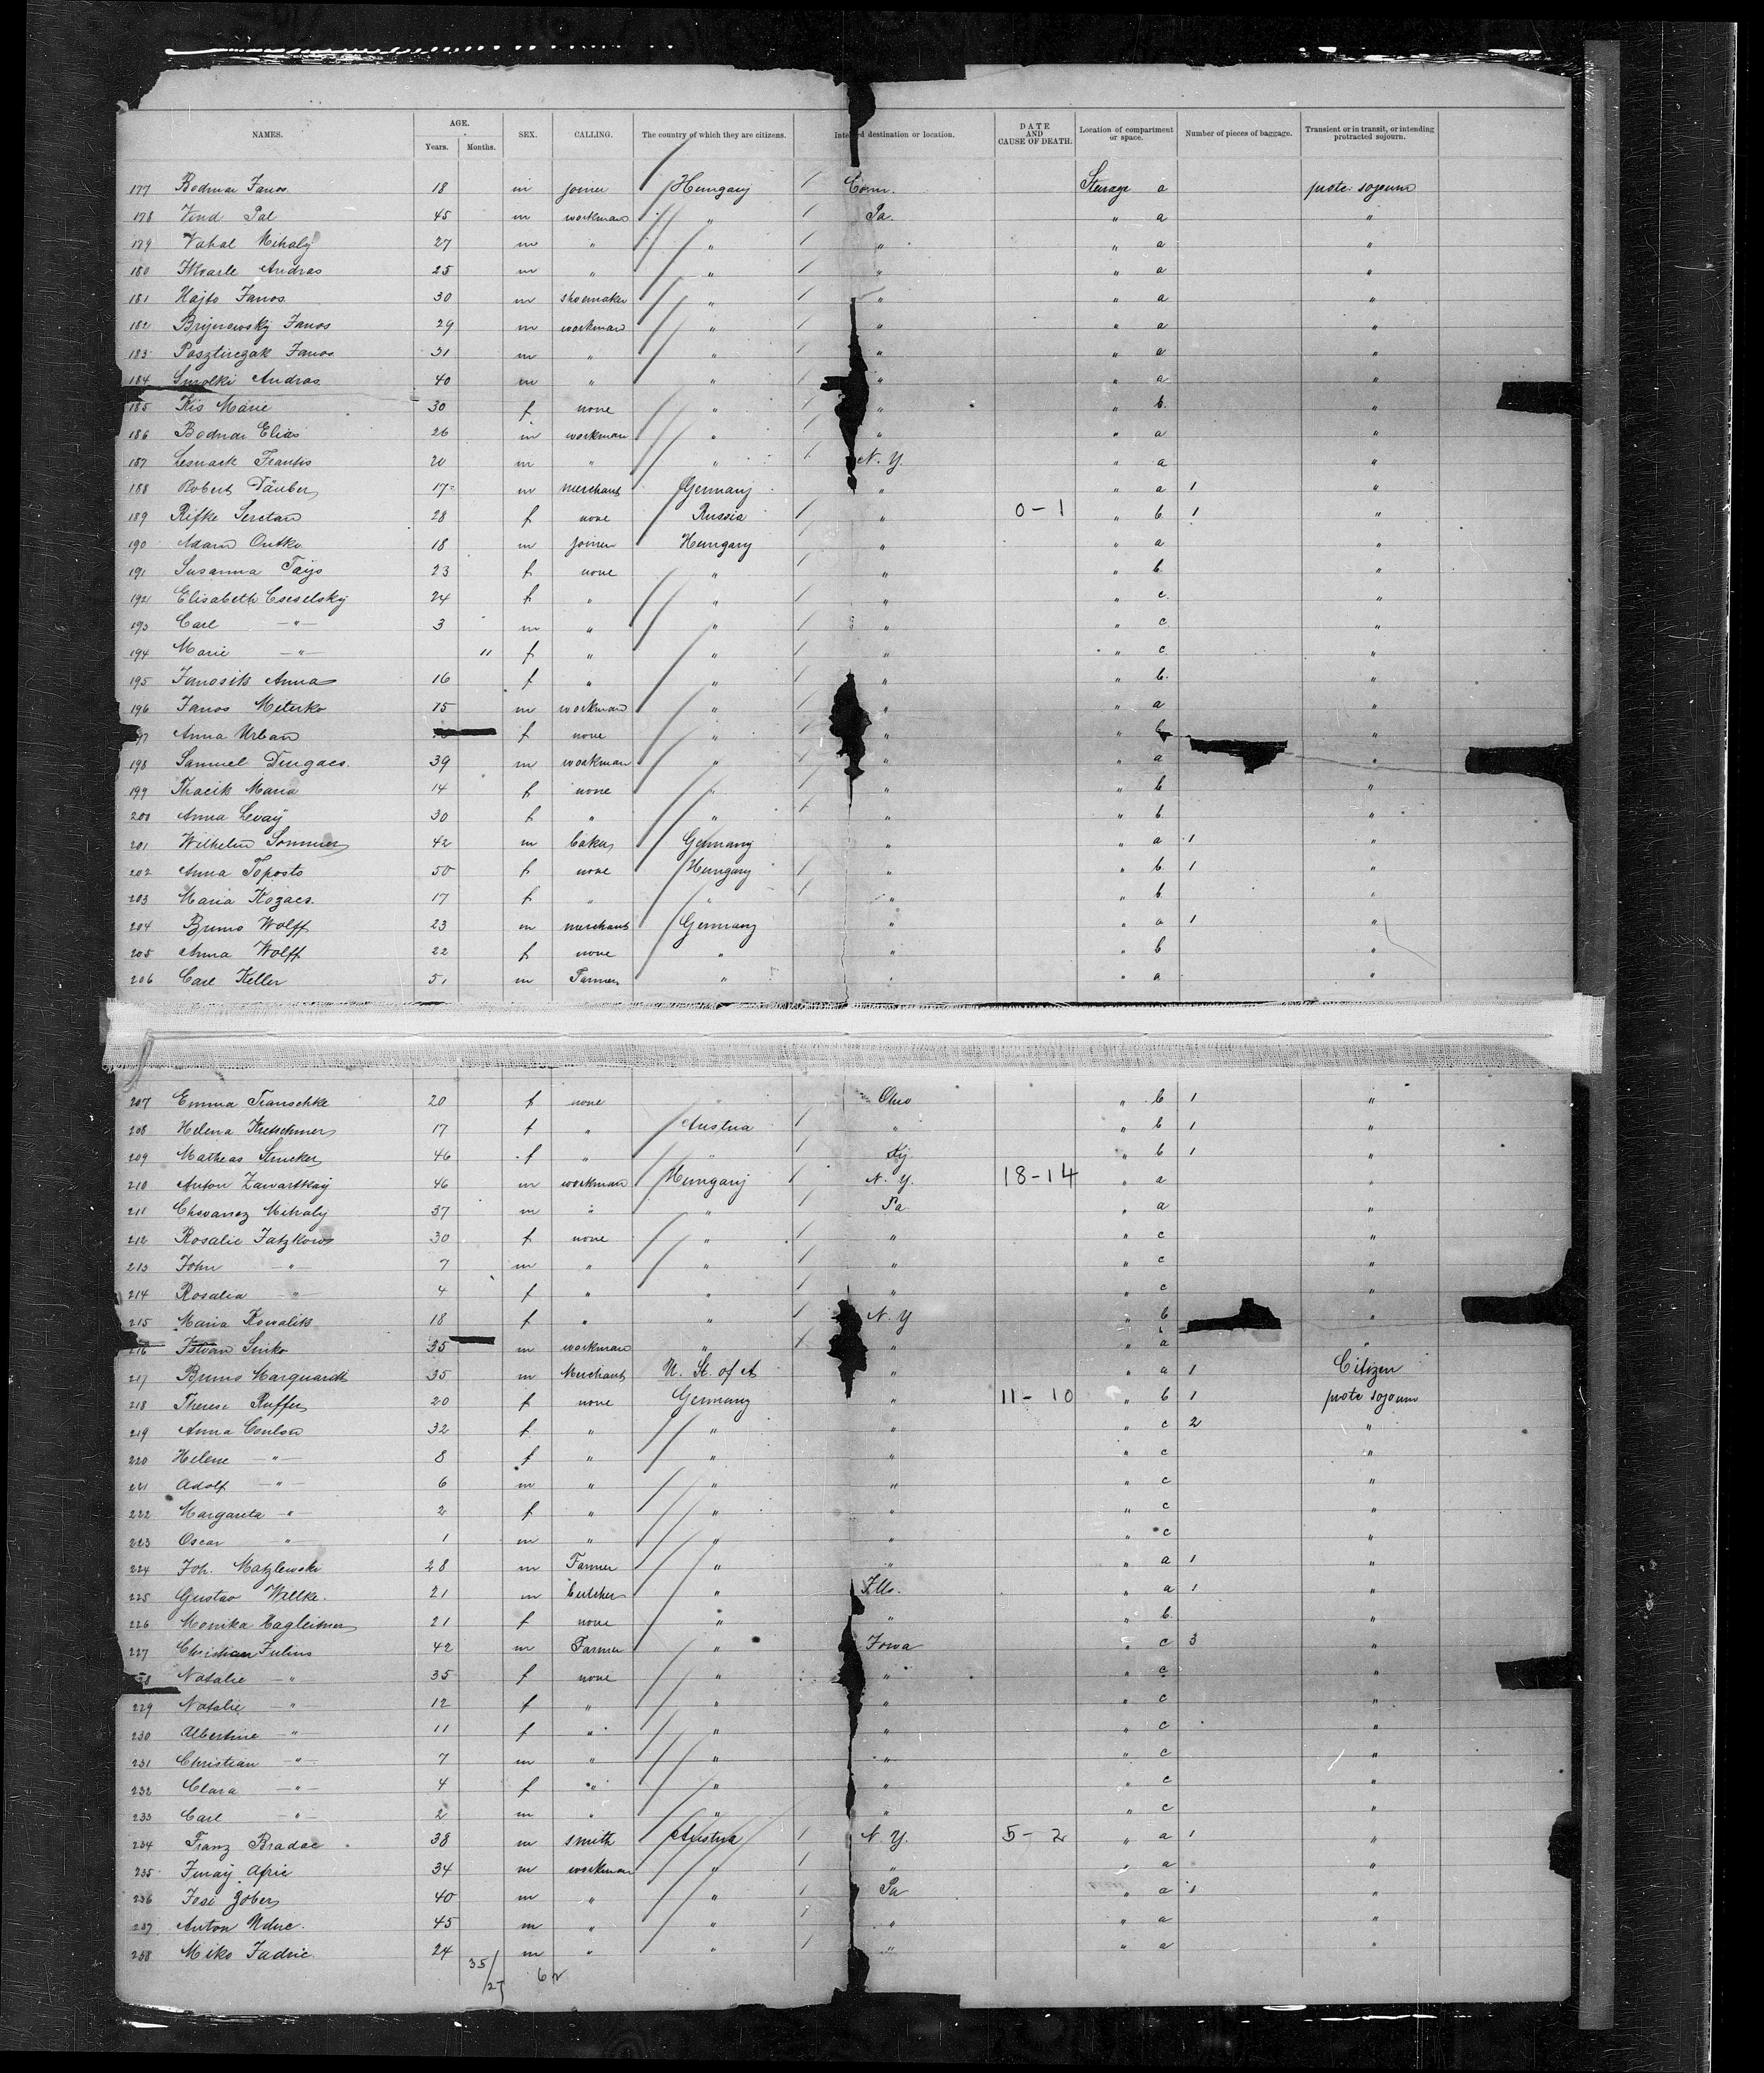 NAMES. AGE. Years. Months. SEX. CALLING. The country of which they are citizens. Intended destination or location. DATE AND CAUSE OF DEATH. Location of compartment or space. Number of pieces of baggage. Transient or in transit, or intending protracted sojourn.
177 Bodnar Janos 18 m joiner Hungary Conn. Steerage a protr. sojourn
178 Vind Pal 45 m workman " Pa. " a "
179 Vahal Mihaly 27 m " " " " a "
180 Andras 25 m " " " " a "
181 Hajto Janos 30 m shoemaker " " " a "
182 Brijnewsky Janos 29 m workman " " " a "
183 Pasztirczak Janos 31 m " " " " a "
184 Smolki Andras 40 m " " " " a "
185 Kis Marie 30 f none " " " b. "
186 Bodnar Elias 26 m workman " " " a "
187 Lesnack Frantis 20 m " " N. Y. " a "
188 Robert Täuber 17 m merchant Germany " " a 1 "
189 Rifke Seretan 28 f none Russia " 0-1 " b 1 "
190 Adam Outko 18 m joiner Hungary " " a "
191 Susanna Tajs 23 f none " " " b "
192 Elisabeth Cseselsky 24 f " " " " c. "
193 Carl " 3 m " " " " c "
194 Marie " 11 f " " " " c "
195 Janosik Anna 16 f " " " " b. "
196 Janos Meterko 15 m workman " " " a "
197 Anna Urban f none " " " b "
198 Samuel Dingacs 39 m workman " " " a "
199 Thacik Maria 14 f none " " " b "
200 Anna Levay 30 f " " " " b. "
201 Wilhelm Sommer 42 m baker Germany " " a 1 "
202 Anna Toposto 50 f none Hungary " " b. 1 "
203 Maria Kozacs 17 f " " " " b. "
204 Bruno Wolff 23 m merchant Germany " " a 1 "
205 Anna Wolff 22 f none " " " b "
206 Carl Keller 51 m Farmer " " " a "
207 Emma Transchke 20 f none " Ohio " b 1 "
208 Helena Kretschmer 17 f " Austria " " b 1 "
209 Matheas Strucker 46 f " " Ky. " b 1 "
210 Anton Zawartkay 46 m workman Hungary N. Y. 18-14 " a "
211 Chovanez Mihaly 37 m " " Pa " a "
212 Rosalie Jatzkows 30 f none " " " c "
213 John " 7 m " " " " c "
214 Rosalia " 4 f " " " " c "
215 Maria Kowalik 18 f " " N. Y " b "
216 Istvan Sinko 35 m workman " " " a "
217 Bruno Marquardt 35 m Merchant U. St. of A " " a 1 Citizen
218 Therese Ruffer 20 f none Germany " 11-10 " b 1 protr sojourn
219 Anna Coulon 32 f " " " " c 2 "
220 Helene " 8 f " " " " c "
221 Adolf " 6 m " " " " c "
222 Margarita " 2 f " " " " c "
223 Oscar " 1 m " " " " c "
224 Joh. Matzlewski 28 m Farmer " " " a 1 "
225 Gustav Willke 21 m butcher " Ills. " a 1 "
226 Monika Hagleitner 21 f none " " " b. "
227 Christian Julius 42 m Farmer " Iowa " c 3 "
228 Natalie " 35 f none " " " c "
229 Natalie " 12 f " " " " c "
230 Albertine " 11 f " " " " c "
231 Christian " 7 m " " " " c "
232 Clara " 4 f " " " " c "
233 Carl " 2 m " " " " c "
234 Franz Bradac 38 m smith Austria N. Y. 5-2 " a 1 "
235 Juray Afric 34 m workman " " " a "
236 José Zober 40 m " " Pa " a 1 "
237 Anton Uduc. 45 m " " " " a "
238 Miko Jadric 24 m " " " " a "
35/27 62